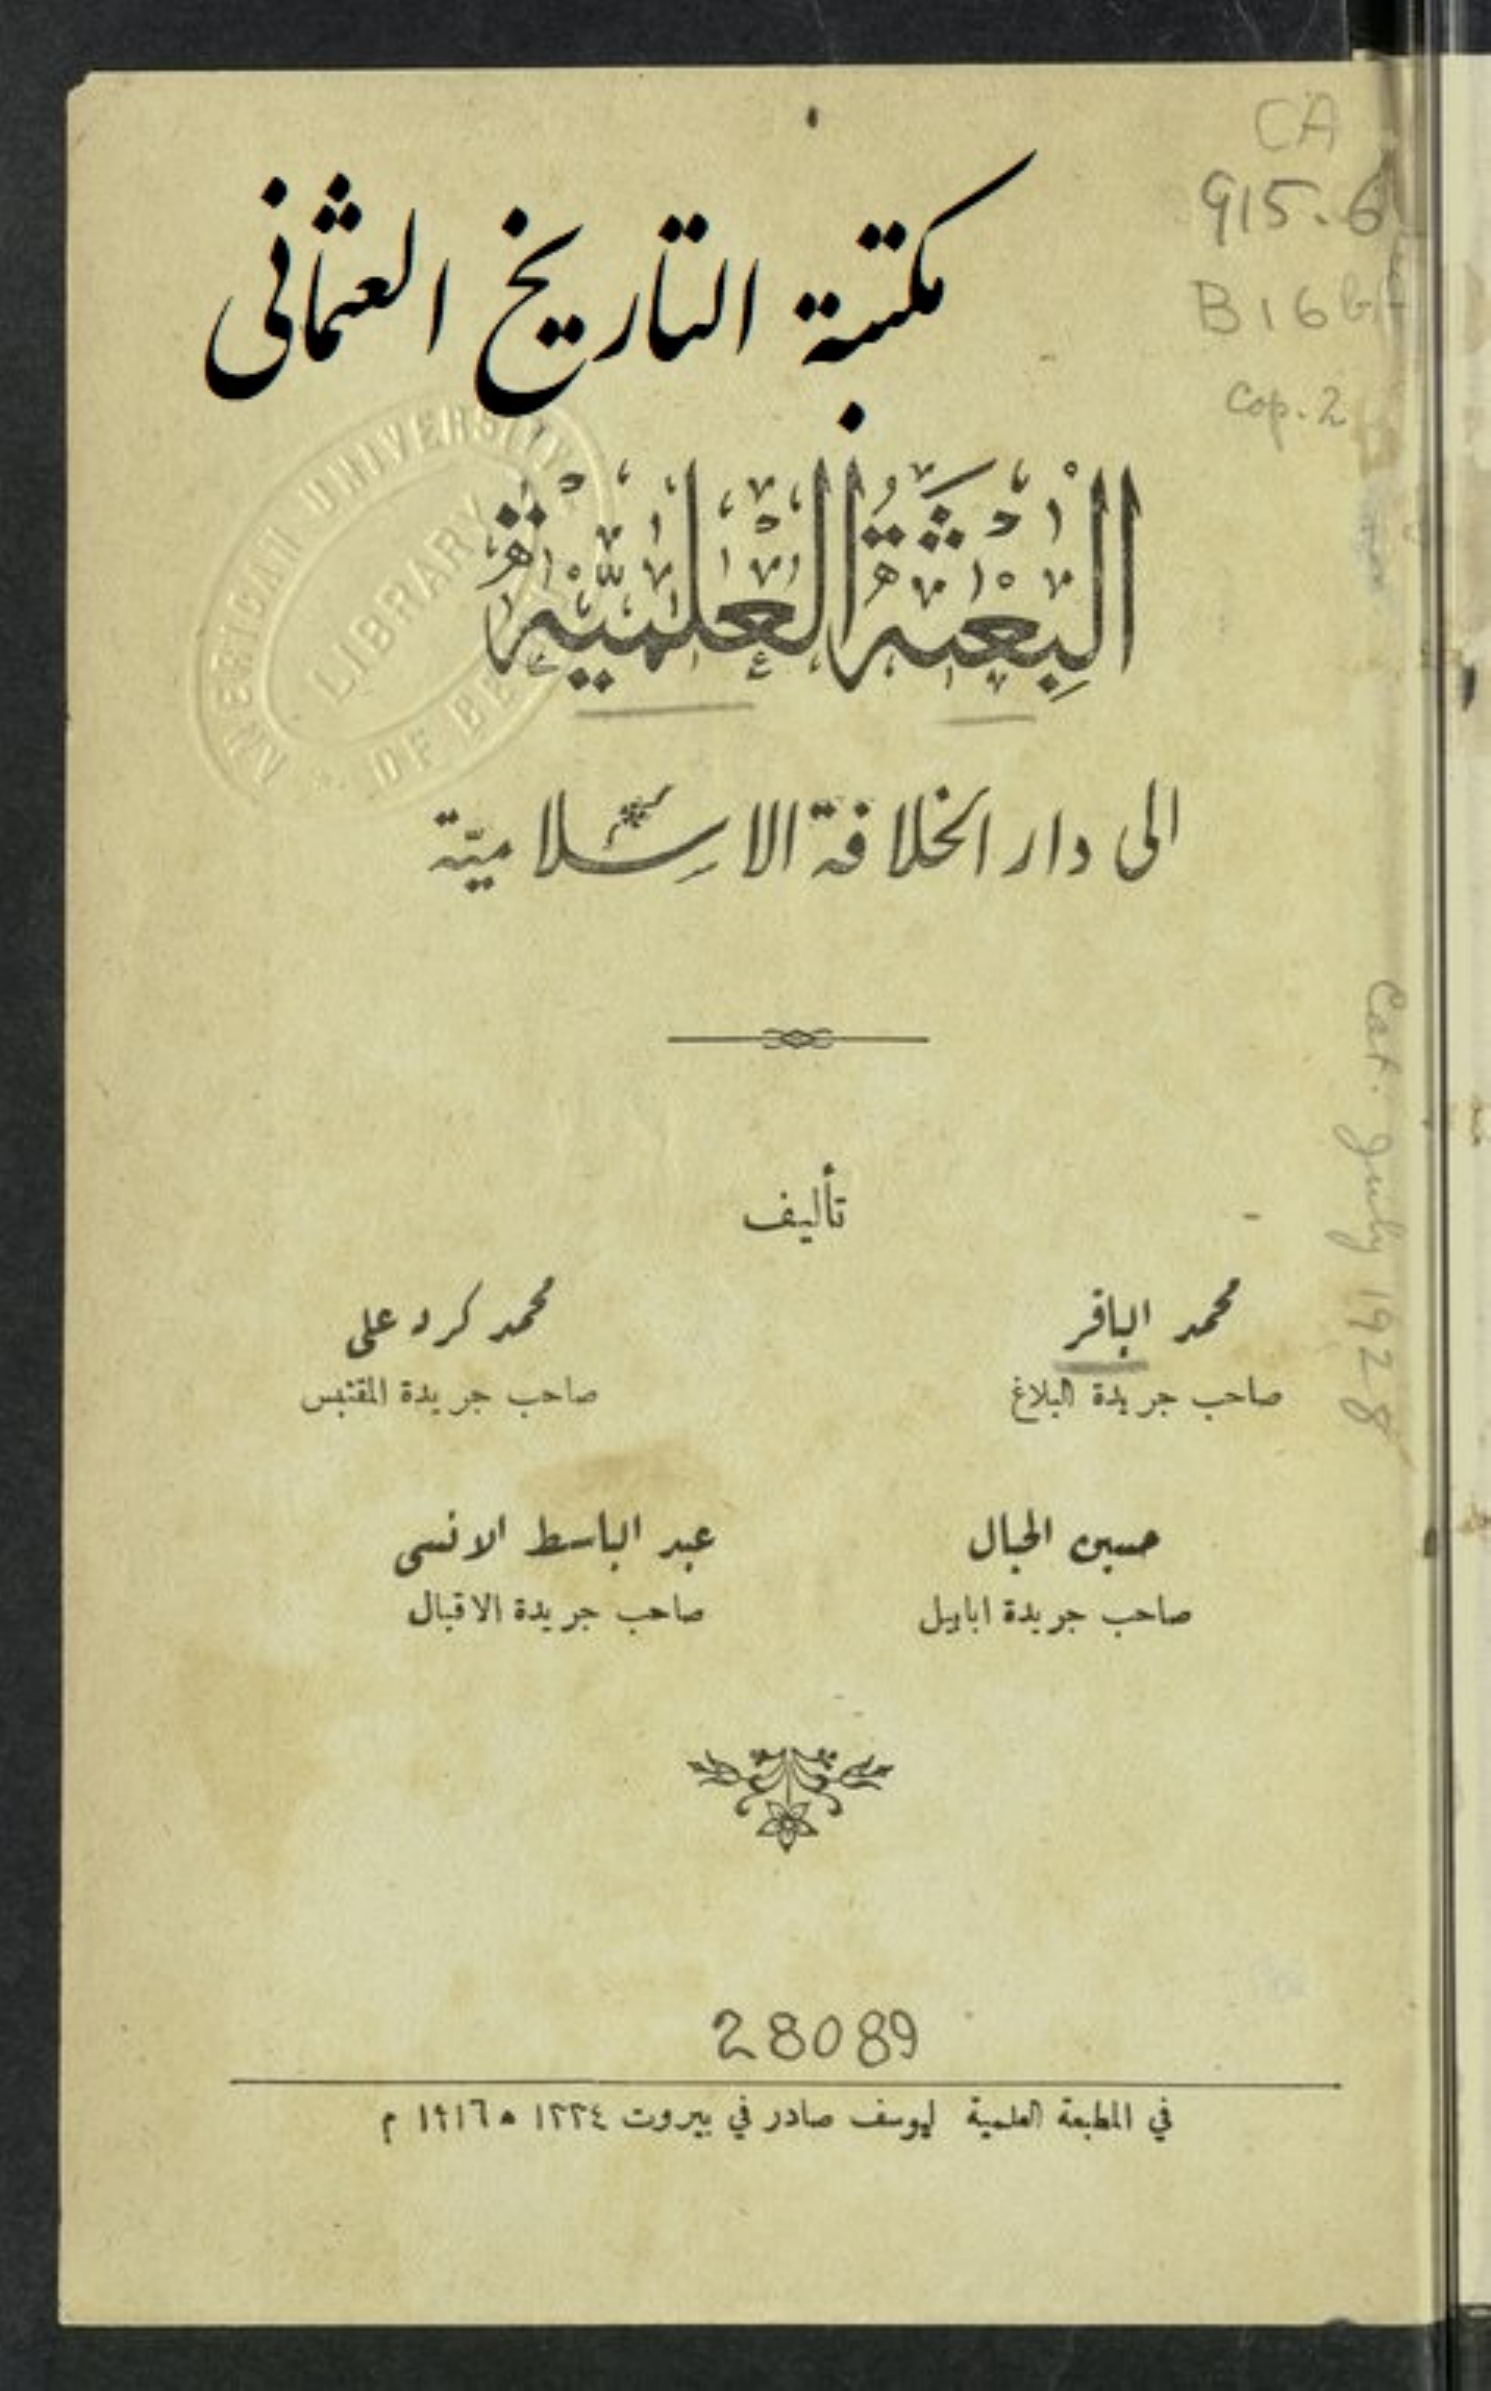 CA
915.6
B16
cop. 2
مكتبة التاريخ العثماني
AMERICAN UNIVERSITY
LIBRARY
OF BE
البِعْثَةُ العِلْمِيَّةُ
الى دار الخلافة الاسلاميّة
تأليف
محمد الباقر
صاحب جريدة البلاغ
محمد كرد على
صاحب جريدة المقتبس
حسين الحبال
صاحب جريدة ابابيل
عبد الباسط الانسى
صاحب جريدة الاقبال
Cat. July 1928
28089
في المطبعة العلمية ليوسف صادر في بيروت ١٣٣٤ ه ١٩١٦ م